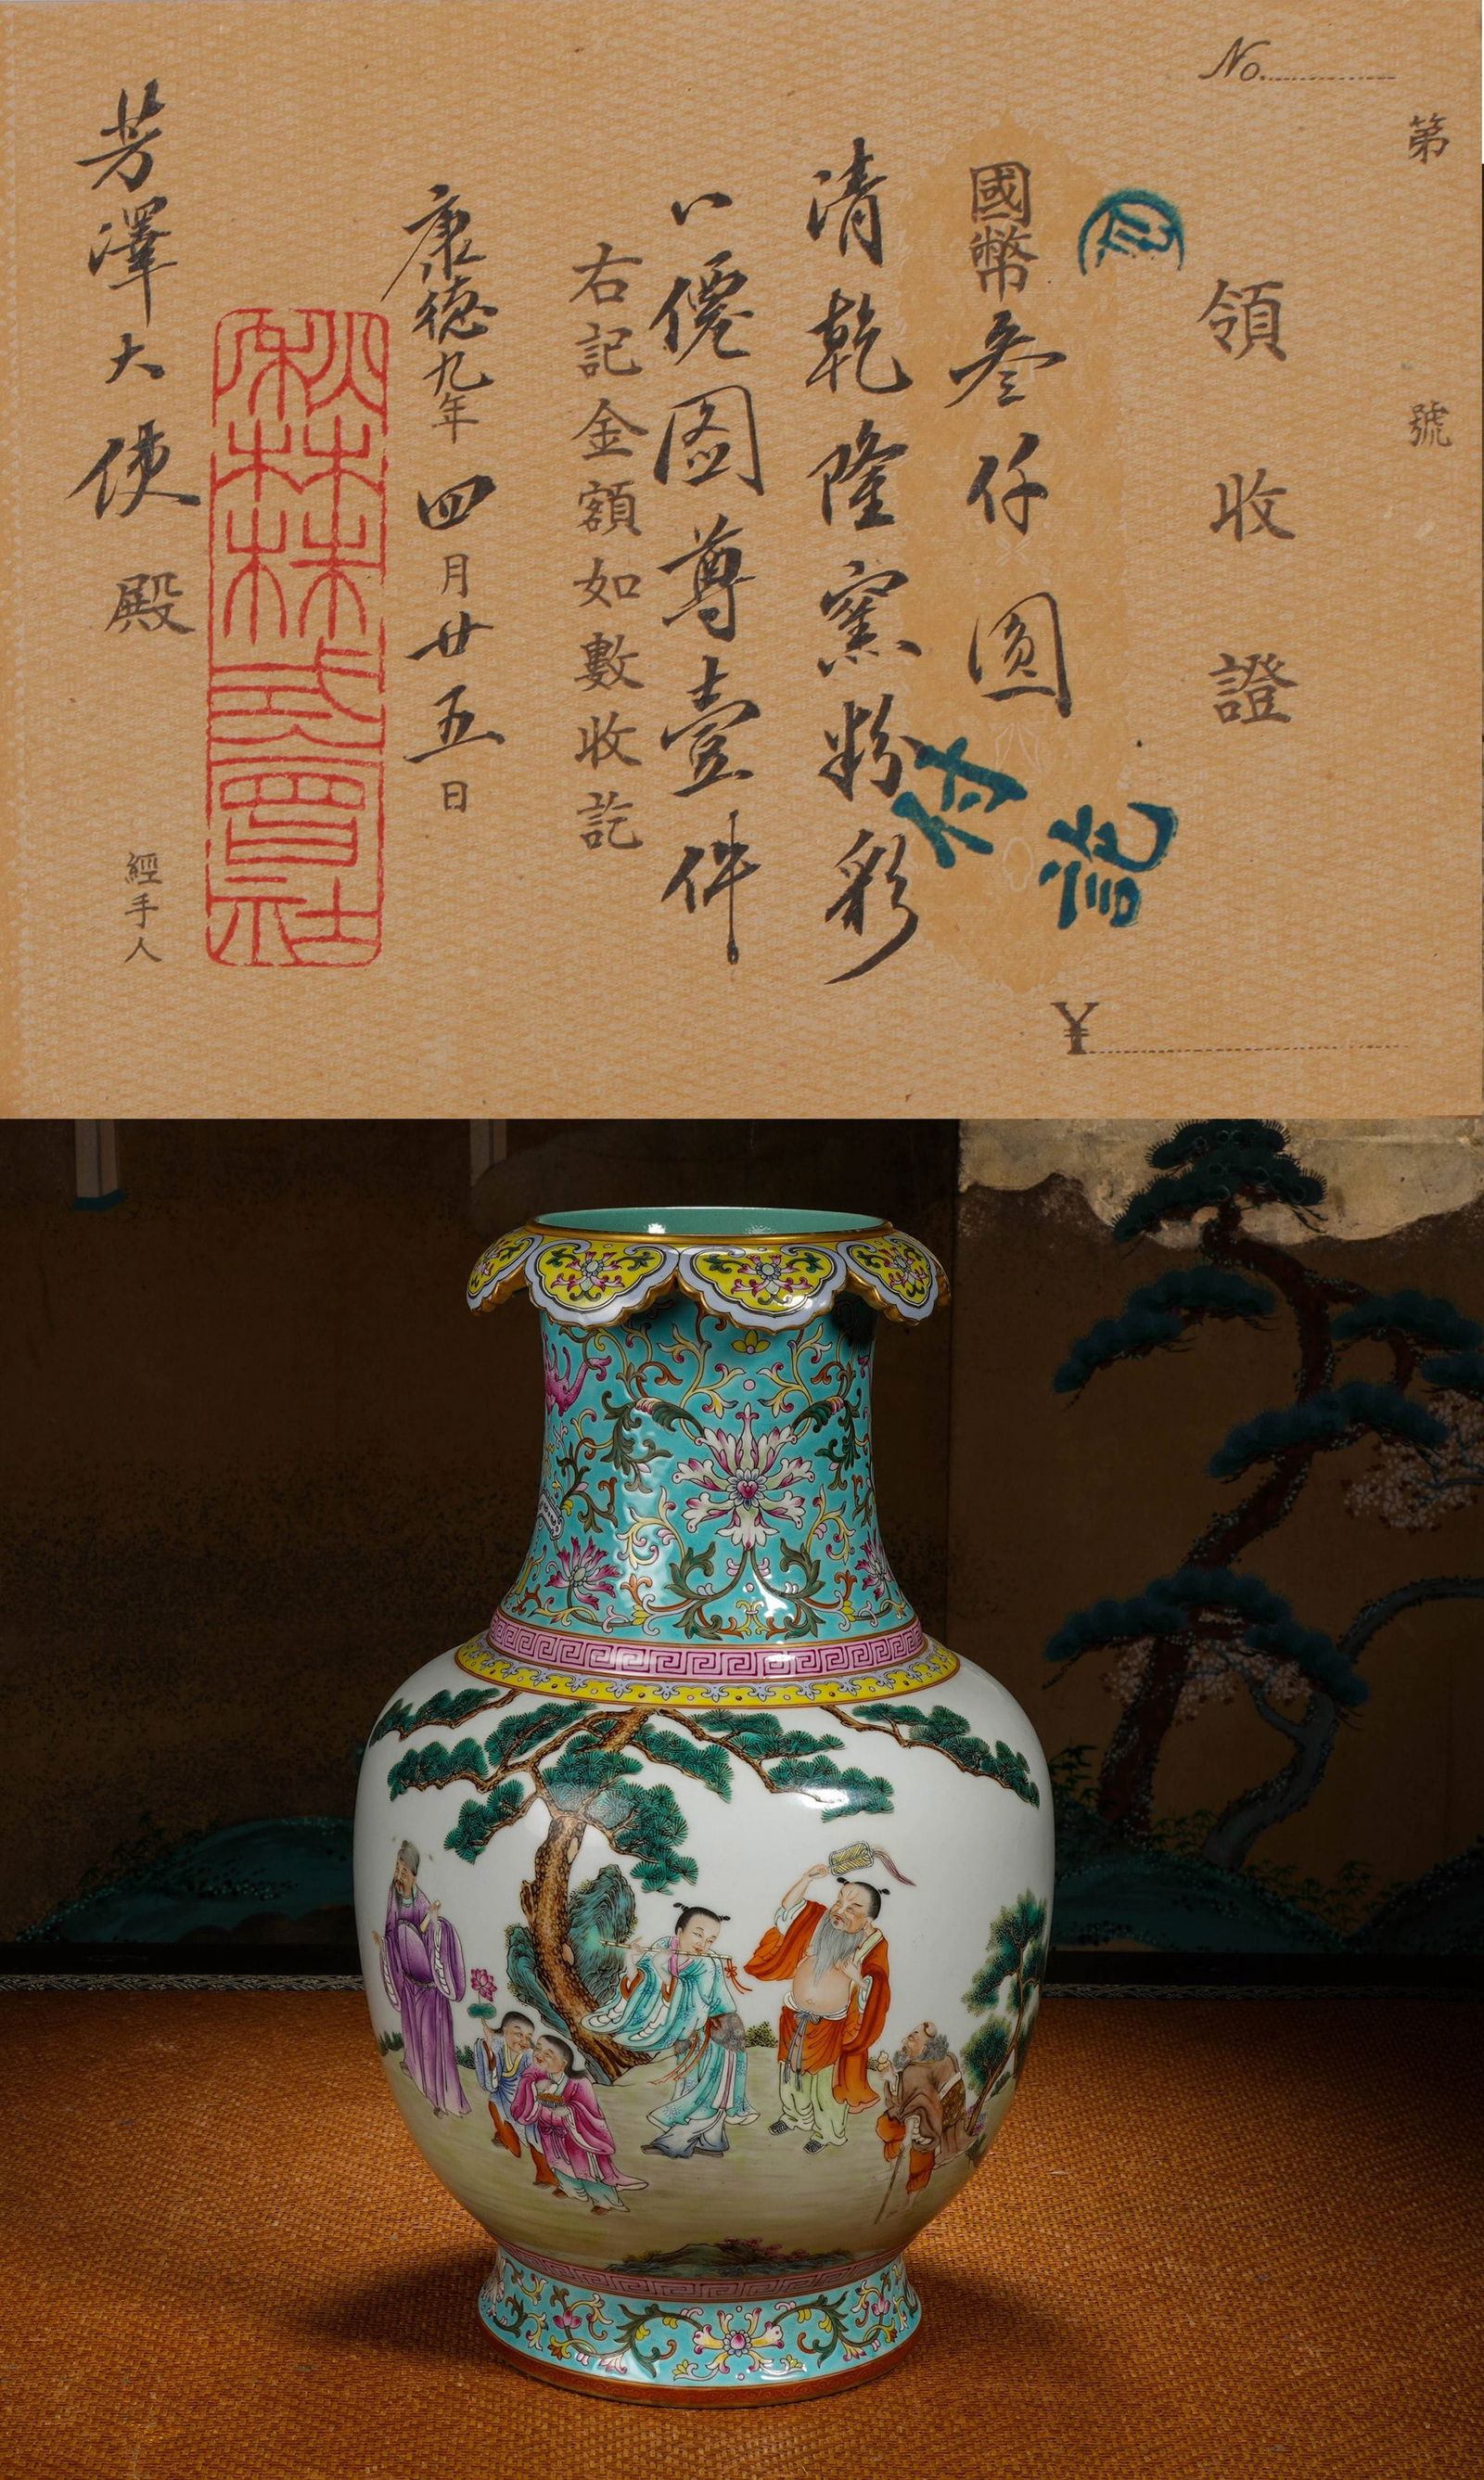 No.
第 號
領收證
國幣叁仟圓
付訖
¥
清乾隆窯粉彩
八僊图尊壹件
右記金額如數收訖
康德九年四月廿五日
秋林株式會社
芳澤大使殿
經手人